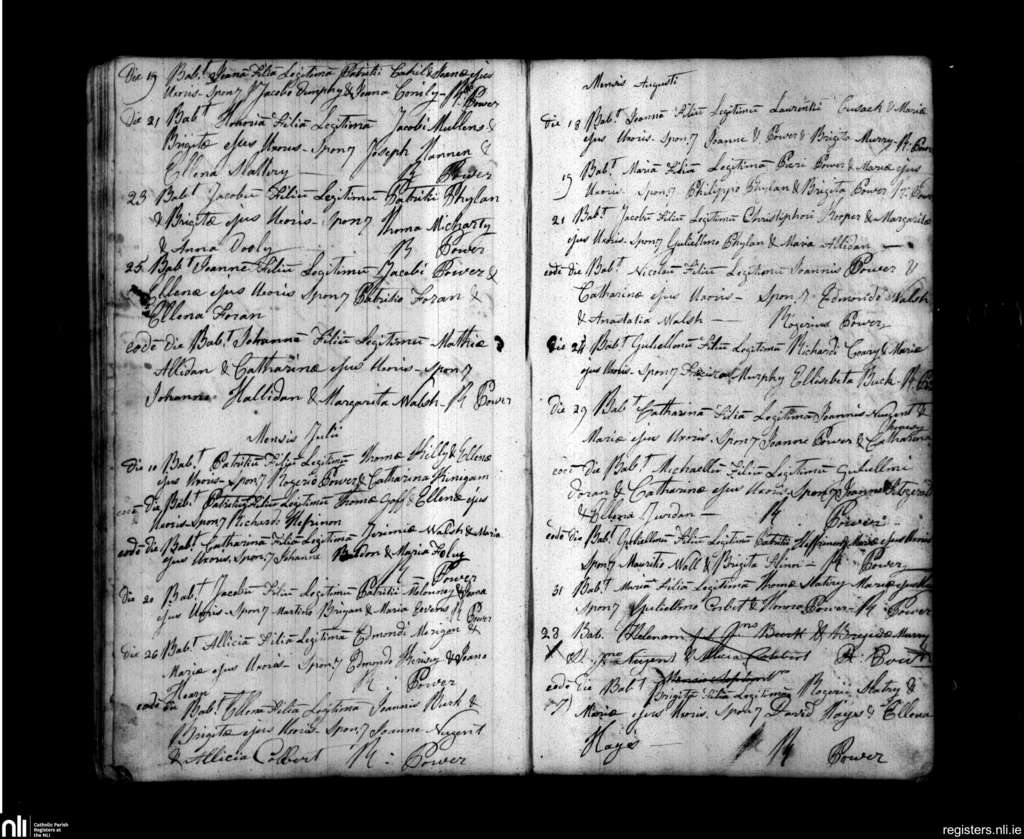 Die 19 Bab.t Joanā Filiā Legitimā Patritii Cahil & Joanæ ejus
Uxoris - Spon7 Jacobo Dunphy & Joana Conily - Rr Power
Die 21 Bab.t Honoriā Filiā Legitimā Jacobi Mullens &
Brigitæ ejus Uxoris - Spon7 Joseph Hannen &
Ellena Slattery — R Power
23 Bab.t Jacobū Filiū Legitimū Patritii Phylan
& Brigitæ ejus Uxoris - Spon7 Thoma Micharty
& Anna Dooly R Power
25 Bab.t Joannē Filiū Legitimū Jacobi Power &
Ellenæ ejus Uxoris Spon7 Patritio Foran &
Ellena Foran
eodē die Bab.t Johannē Filiū Legitimū Mathiæ
Allidan & Catharinæ ejus Uxoris - Spon7
Johanne Hallidan & Margarita Walsh - R Power
Mensis Julii
Die 10 Bab.t Patritiū Filiū Legitimū Thomæ Hilly & Ellenæ
ejus Uxoris - Spon7 Rogerio Power & Catharina Finigam
eodē die Bab.t Patritiū Filiū Legitimū Thomæ Goff & Ellenæ ejus
Uxoris Spon7 Richardo Hefrinon
eodē die Bab.t Catharinā Filiā Legitimā Jeremiæ Walsh & Maria
ejus Uxoris Spon7 Johanne & Maria Foluy
R Power
Die 20 Bab.t Jacobū Filiū Legitimū Patritii Molouney & Joana
ejus Uxoris - Spon7 Martino Bryan & Maria R Power
Die 26 Bab.t Alliciā Filiā Legitimā Edmondi Morigan &
Mariæ ejus Uxoris - Spon7 Edmondo & Joana
Hearn R Power
eodē die Bab.t Ellenā Filiā Legitimā Joannis Burk &
Brigitæ ejus Uxoris - Spon7 Joanne Nugent
& Allicia Colbert R : Power
Mensis Augusti
Die 18 Bab.t Joannā Filiā Legitimā Laurentii Cusack & Mariæ
ejus Uxoris - Spon7 Joanne V. Power & Brigita Murry - Rr Power
19 Bab.t Mariā Filiā Legitimā Pieri Power & Mariæ ejus
Uxoris. Spon7 Philippo Phylan & Brigita Power Rr Power
21 Bab.t Jacobū Filiū Legitimū Christiphori Hooper & Margaritæ
ejus Uxoris - Spon7 Gulielmo Phylan & Maria Allidan —
eodē die Bab.t Nicolaū Filiū Legitimū Joannis Power &
Catharinæ ejus Uxoris - Spon7 Edmondo Walsh
& Anastatia Walsh — Rogerius Power
Die 24 Bab.t Gulielmū Filiū Legitimū Richardi Crary & Mariæ
ejus Uxoris - Spon7 Murphy Ellisebeta Burk - Rr
Die 29 Bab.t Catharinā Filiā Legitimā Joannis Nugent &
Mariæ ejus Uxoris - Spon7 Joanne Power & Catharina
eodē Die Bab.t Michaellū Filiū Legitimū Gulielmi
Doran & Catharinæ ejus Uxoris - Spon7 Joanne Fitzgerald
& Ellena Jurdan — R Power
eodē die Bab.t Gulielmū Filiū Legitimū Patritii Heffrinon & Mariæ ejus Uxoris
Spon7 Mauritio Wall & Brigita Flinn - R Power
31 Bab.t Mariā Filiā Legitimā Thomæ Slatry Mariæ ejus
Spon7 Gulielmo Corbet & Honora Power - R Power
28 Bab. Helenam Burk & Brigidæ Murry
Nugent & Alicia Colbert R. Power
Mensis Septembris
eodē die Bab.t Brigitā Filiā Legitimā Rogerii Slatry &
Mariæ ejus Uxoris. Spon7 David Hays & Ellena
Hays — R Power
nli
Catholic Parish
Registers at
the NLI
registers.nli.ie